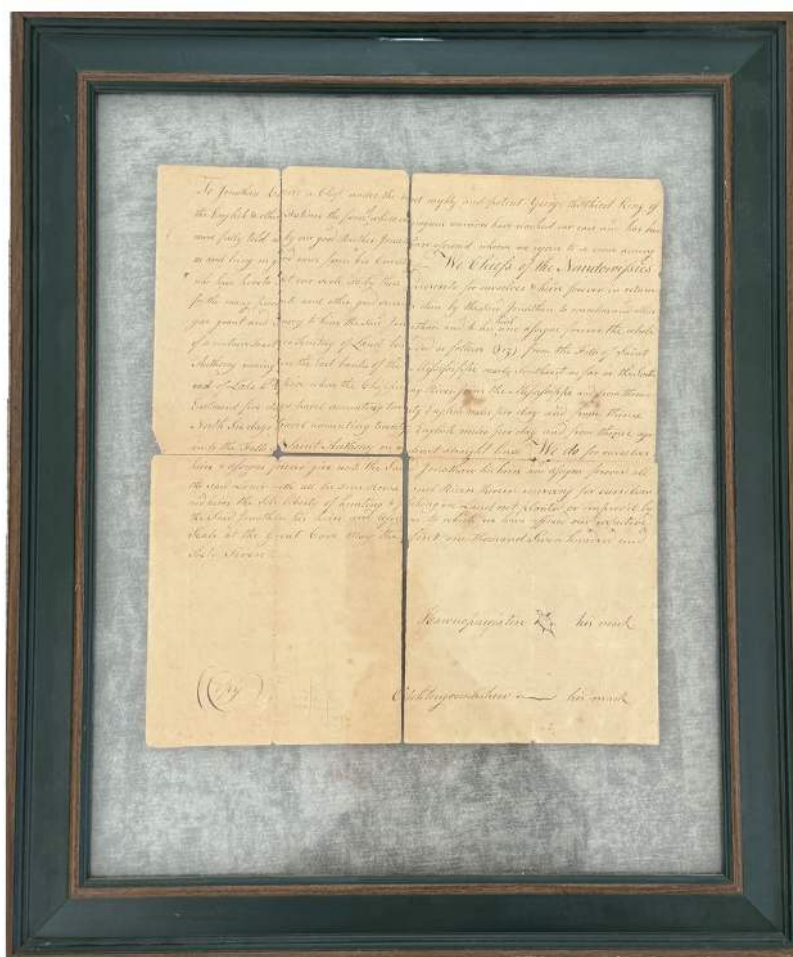 To Jonathan Carver a Chief under the most mighty and potent George the third King of
the English & other Nations the fame of whose warriors have reached our ears and has been
more fully told us by our good Brother Jonathan aforesaid whom we rejoice to see come among
us and bring us good news from his Country We Chiefs of the Naudowissies
who have hereto set our seals do by these presents for ourselves & heirs forever in return
for the many presents and other good services done by the said Jonathan to ourselves and allies
give grant and convey to him the said Jonathan and to his heirs and assigns forever the whole
of a certain tract or Territory of Land bounded as follows (viz) from the Falls of Saint
Anthony running on the east banks of the Mississippi nearly southeast as far as the South
end of Lake Pepin where the Chipeway River joins the Mississippi and from thence
Eastward five days travel accounting twenty English miles per day and from thence
North Six days travel accounting twenty English miles per day and from thence again
to the Falls of Saint Anthony on a direct straight line We do for ourselves
heirs & assigns forever give unto the said Jonathan his heirs and assigns forever all
the said Lands with all the Trees Rocks and Rivers therein reserving for ourselves
and heirs the Sole liberty of hunting & fishing on Land not planted or improved by
the said Jonathan his heirs and assigns to which we have affixed our respective
Seals at the Great Cave May the first one thousand Seven hundred and
Sixty Seven
his mark
(Copy)
his mark